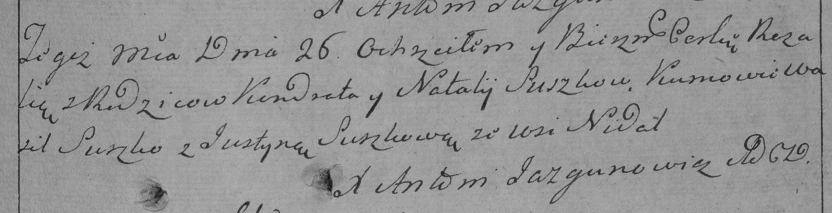 X Antoni Jazgunow
Tegoż Mca Dnia 26. Ochrzciłem y Bierzm Corkę Roza
lię z Rodzicow Kondrata y Natalij Suszkow. Kumowie Wa
sil Suszko z Justyną Suszkową ze wsi Nidal
X Antoni Jazgunowicz